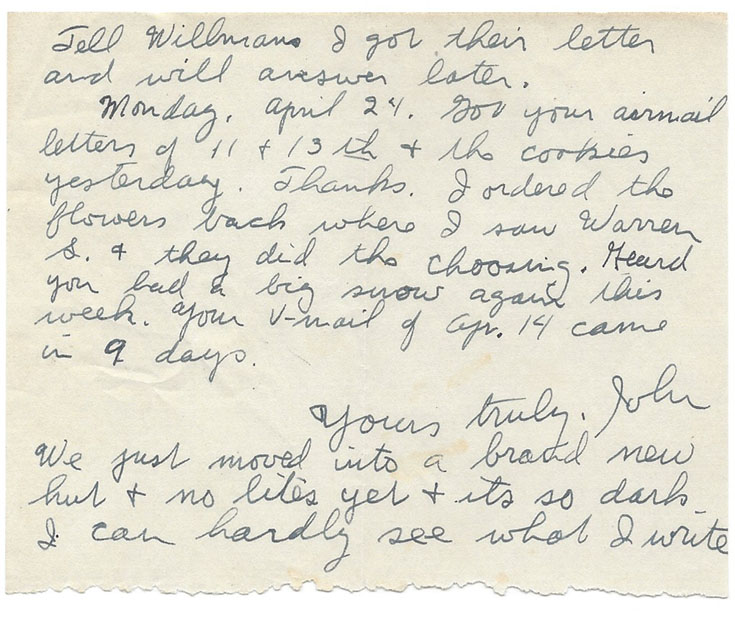 Tell Willmans I got their letter
and will answer later.
Monday, April 24. Got your airmail
letters of 11 & 13th & the cookies
yesterday. Thanks. I ordered the
flowers back where I saw Warren
S. & they did the choosing. Heard
you had a big snow again this
week. Your V-mail of Apr. 14 came
in 9 days.
Yours truly, John
We just moved into a brand new
hut & no lites yet & its so dark
I can hardly see what I write